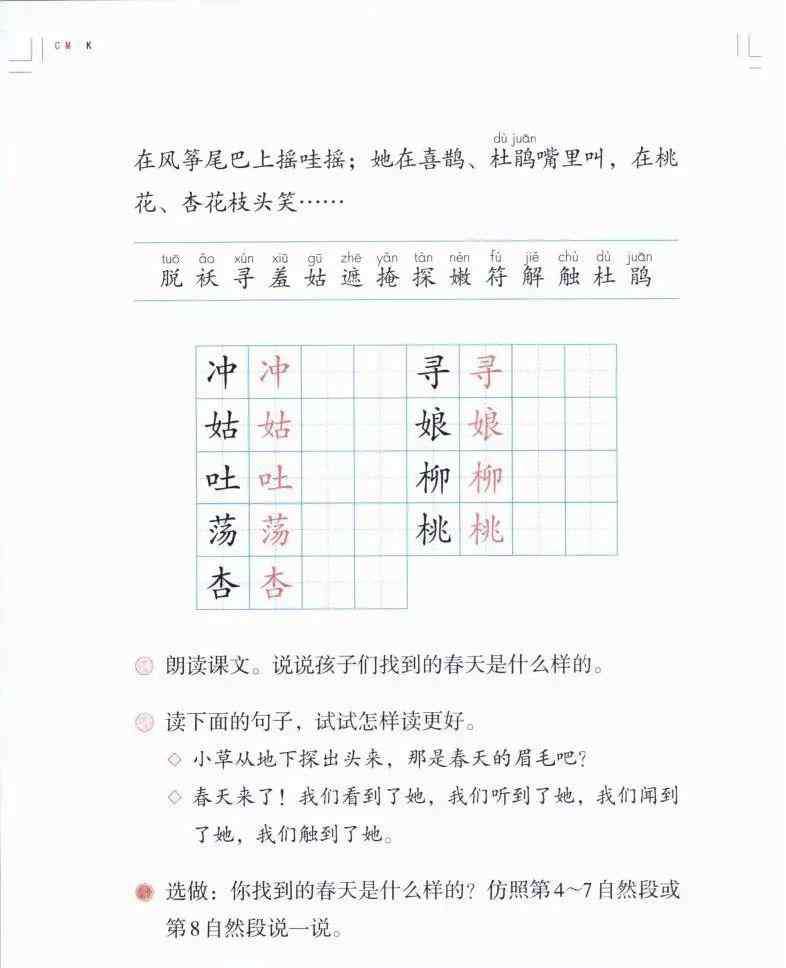 CM K
dù juān
在风筝尾巴上摇哇摇；她在喜鹊、杜鹃嘴里叫，在桃
花、杏花枝头笑……
tuō ǎo xún xiū gū zhē yǎn tàn nèn fú jiě chù dù juān
脱 袄 寻 羞 姑 遮 掩 探 嫩 符 解 触 杜 鹃
冲 冲 寻 寻
姑 姑 娘 娘
吐 吐 柳 柳
荡 荡 桃 桃
杏 杏
朗读课文。说说孩子们找到的春天是什么样的。
读下面的句子，试试怎样读更好。
◇ 小草从地下探出头来，那是春天的眉毛吧？
◇ 春天来了！我们看到了她，我们听到了她，我们闻到
了她，我们触到了她。
选做：你找到的春天是什么样的？仿照第4～7自然段或
第8自然段说一说。